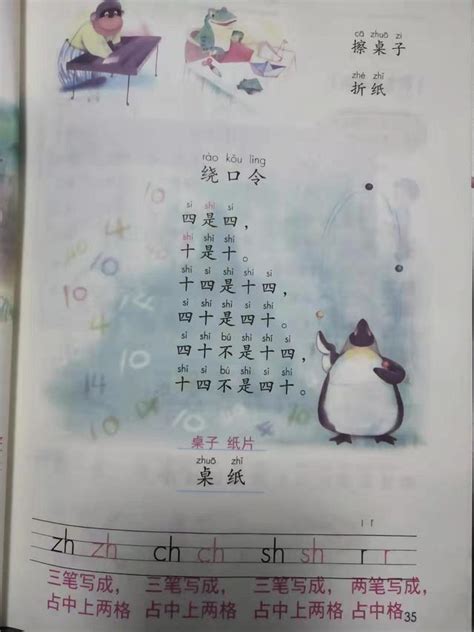 cā zhuō zi
擦桌子
zhé zhǐ
折纸
rào kǒu lìng
绕口令
sì shì sì
四是四，
shí shì shí
十是十。
shí sì shì shí sì
十四是十四，
sì shí shì sì shí
四十是四十。
sì shí bú shì shí sì
四十不是十四，
shí sì bú shì sì shí
十四不是四十。
桌子 纸片
zhuō zhǐ
桌 纸
zh zh ch ch sh sh r r
三笔写成， 三笔写成， 三笔写成， 两笔写成，
占中上两格 占中上两格 占中上两格 占中格
35